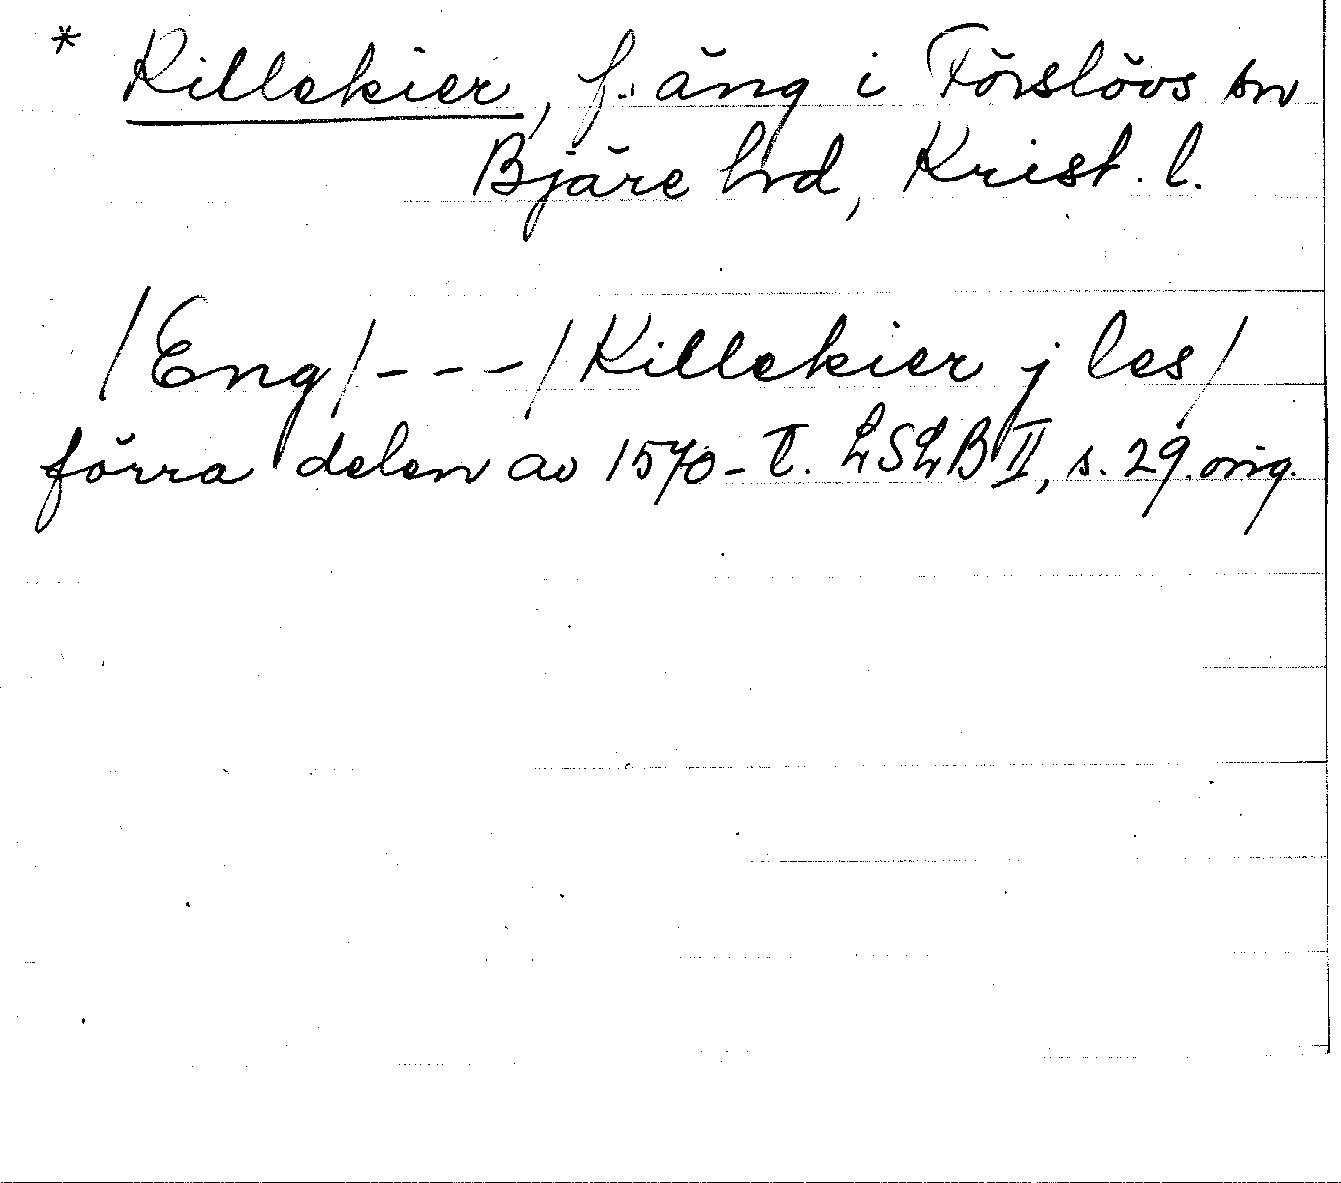 * Killekier, f. äng i Förslövs sn
Bjäre hrd, Krist. l.
/Eng/---/Killekier j les/
förra delen av 1570-t. LSLB II, s. 29. orig.